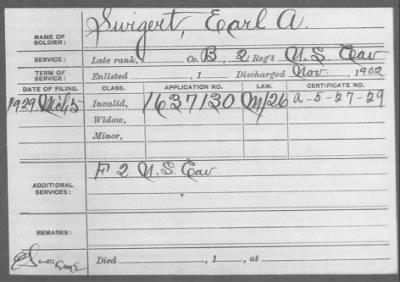 NAME OF SOLDIER: Swigert, Earl A.
SERVICE: Late rank, Co. B, 2 Reg't U.S. Cav
TERM OF SERVICE: Enlisted , 1 Discharged Nov. , 1902
DATE OF FILING. CLASS. APPLICATION NO. LAW. CERTIFICATE NO.
1929 Mch 5 Invalid, 1637130 a-5-27-29
Widow,
Minor,
ADDITIONAL SERVICES: F 2 U.S. Cav
REMARKS:
Died , 1 , at